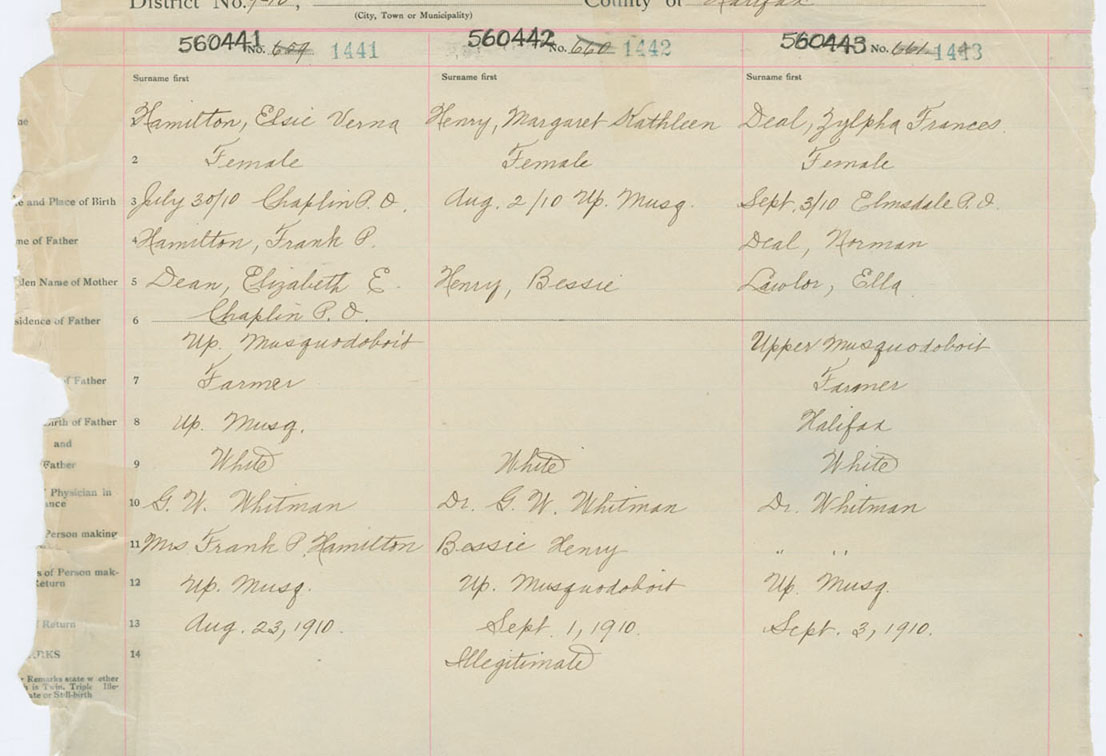 District No. 9-10, County of Halifax
(City, Town or Municipality)
560441 No. 659 1441 560442 No. 660 1442 560443 No. 661 1443
Surname first Surname first Surname first
me 1 Hamilton, Elsie Verna Henry, Margaret Kathleen Deal, Zylpha Frances.
2 Female Female Female
e and Place of Birth 3 July 30/10 Chaplin P.O. Aug. 2/10 Up. Musq. Sept. 3/10 Elmsdale P.O.
me of Father 4 Hamilton, Frank P. Deal, Norman
den Name of Mother 5 Dean, Elizabeth E. Henry, Bessie Lawlor, Ella
Chaplin P.O.
sidence of Father 6
Up. Musquodoboit Upper Musquodoboit
of Father 7 Farmer Farmer
Birth of Father 8 Up. Musq. Halifax
and
Father 9 White White White
Physician in
ance 10 G. W. Whitman Dr. G. W. Whitman Dr. Whitman
Person making 11 Mrs Frank P. Hamilton Bessie Henry " "
s of Person mak-
Return 12 Up. Musq. Up. Musquodoboit Up. Musq.
f Return 13 Aug. 23, 1910. Sept. 1, 1910. Sept. 3, 1910.
RKS 14 Illegitimate
Remarks state w ether
is Twin, Triple Ille-
ate or Still-birth